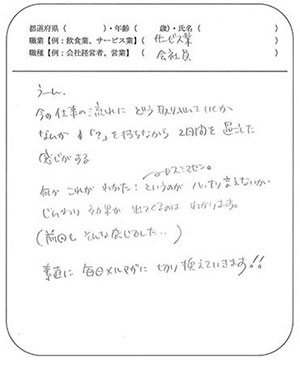 都道府県（　　　　）・年齢（　　歳）・氏名（　　　　）
職業【例：飲食業、サービス業】（サービス業）
職種【例：会社経営者、営業】（会社員）
うーん。
今の仕事の流れに どう取り入れていくか
なんか 「？」を持ちながら 2日間を 過ごした
感じがする
スミマセン。
何か これが わかた：というのが ハッキリ言えないが
じんわり 効果が 出てくるのは わかります。
（前回も そんな感じでした…）
素直に 毎日メルマガに 切り換えていきます!!